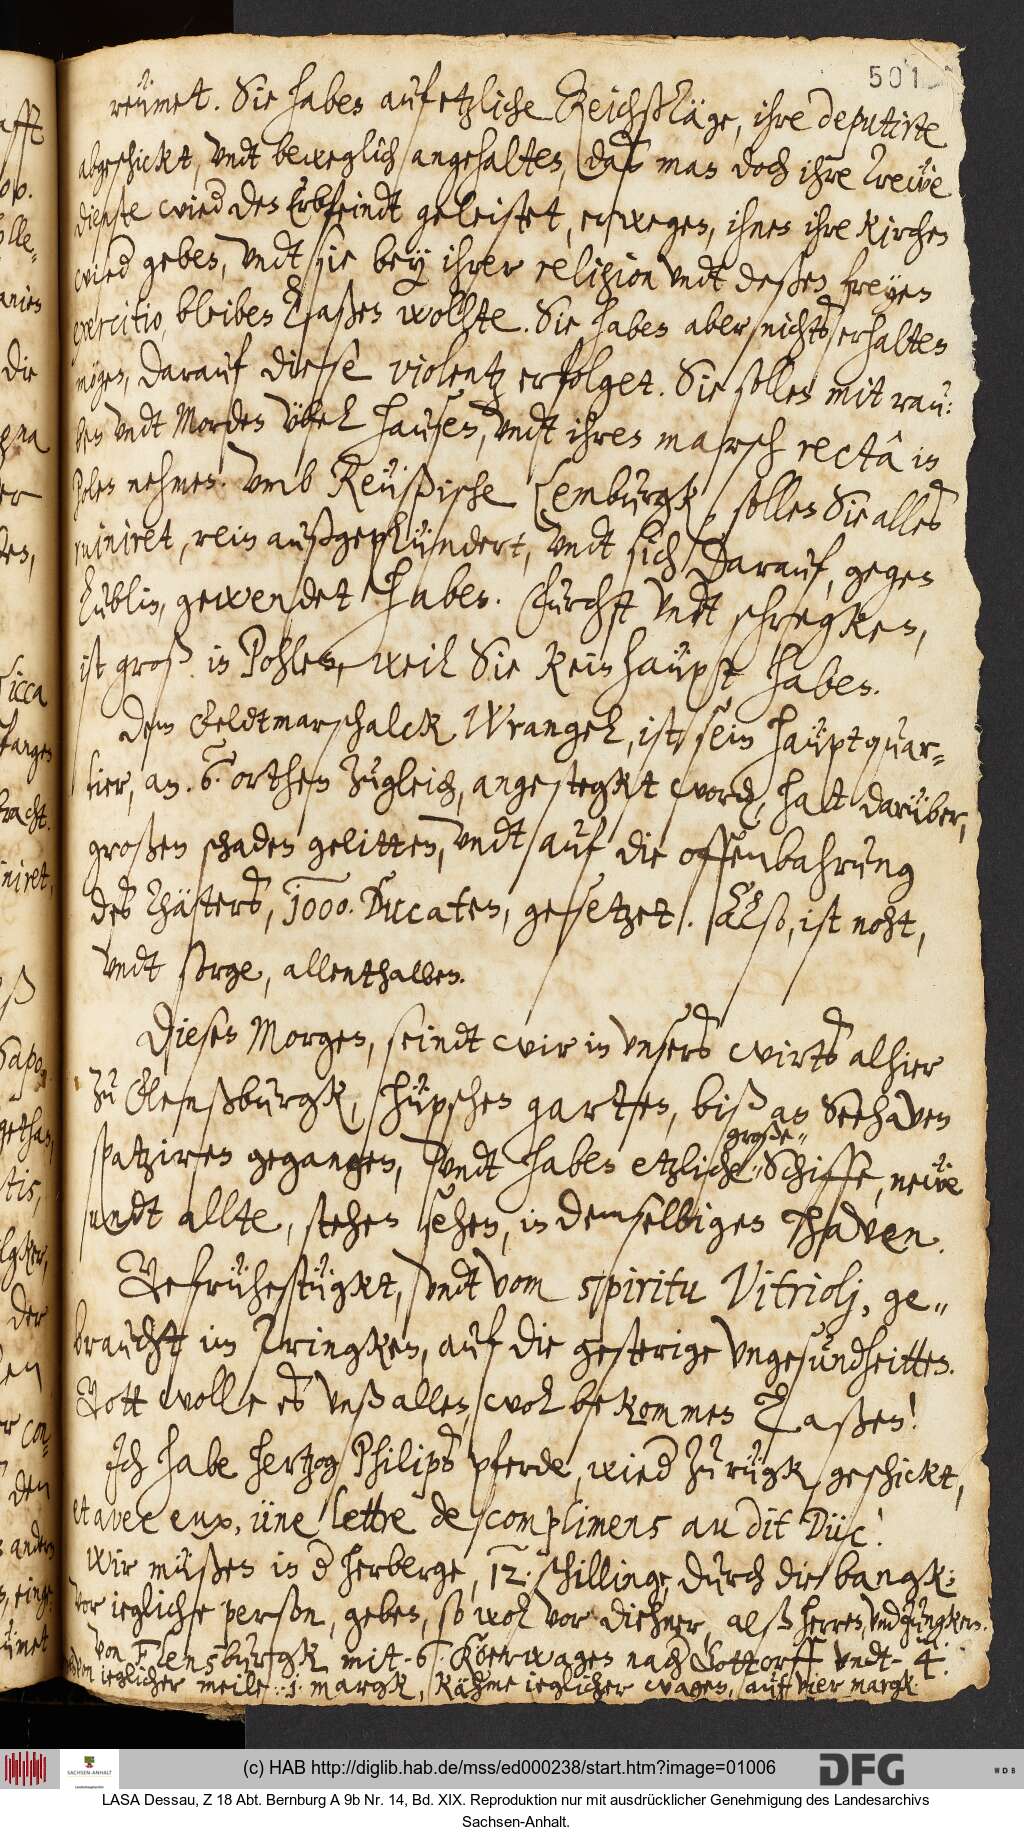 501
reümet. Sie haben auf etzliche Reichßtäge, ihre deputirte
abgeschickt, undt beweglich angehalten, daß man doch ihre Trewe
dienste wied den Erbfeindt geleistet, erwegen, ihnen ihre Kirchen
wied geben, undt sie bey ihrer religion undt deßen freyen
exercitio, bleiben laßen wollte. Sie haben aber nichts erhalten
mögen, darauf diese violentz erfolget. Sie sollen mit rau:
ben undt Morden übel hausen, undt ihren marsch rectâ in
Polen nehmen. Umb Reüßische Lemburgk, sollen Sie alles
ruiniret, rein außgeplündert, undt sich darauf, gegen
Lublin, gewendet haben. Furcht undt schregken,
ist groß in Pohlen, weil Sie kein haüpt haben.
Dem Feldtmarschalck Wrangel, ist sein haüptquar=
tier, an .6. orthen zugleich, angestegkt word, hat darüber,
großen schaden gelitten, undt auf die offenbahrung
des Thäters, 1000. Ducaten, gesetzet. Also, ist noht,
undt sorge, allenthalben.
Diesen Morgen, seindt wir in unsers wirts alhier
zu Flenßburgk, hüpschen garten, biß an Seehaven
große"
spatziren gegangen, undt haben etzliche" Schiffe, neüe
undt allte, stehen sehen, in demselbigen Haven.
Gefrühestügkt, undt vom spiritu Vitriolj, ge"
braucht im Tringken, auf die gesterige ungesundheitten.
Gott wolle es unß allen, wol bekommen laßen!
Ich habe hertzog Philips pferde, wied zu rügk geschickt,
et avec eux, üne lettre de complimens au dit Düc!
Wir müßen in d herberge, 12. schillinge, durch die bangk:
vor iegliche person, geben, so wol vor diehner, alß herren, und Jungkern.
Von Flensburgk mit .6. Köerwagen nach Gottorff undt .4.
von ieglicher meile .1. margk, kähme ieglicher wagen, auf vier margk.
(c) HAB http://diglib.hab.de/mss/ed000238/start.htm?image=01006
DFG
WDB
SACHSEN-ANHALT
LASA Dessau, Z 18 Abt. Bernburg A 9b Nr. 14, Bd. XIX. Reproduktion nur mit ausdrücklicher Genehmigung des Landesarchivs
Sachsen-Anhalt.